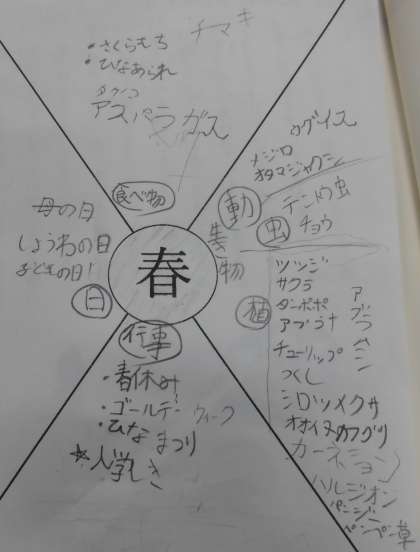 チマキ
・さくらもち
・ひなあられ
タケノコ
アスパラガス
食べ物
ウグイス
メジロ
オタマジャクシ
動
テントウ虫
チョウ
虫
母の日
しょうわの日
子どもの日!
日
春
生き物
植
ツツジ
サクラ
タンポポ
アブラナ
チューリップ
つくし
シロツメクサ
オオイヌノフグリ
カーネーション
ハルジオン
パンジー
ペンペン草
行事
・春休み
・ゴールデンウィーク
・ひなまつり
☆入学しき